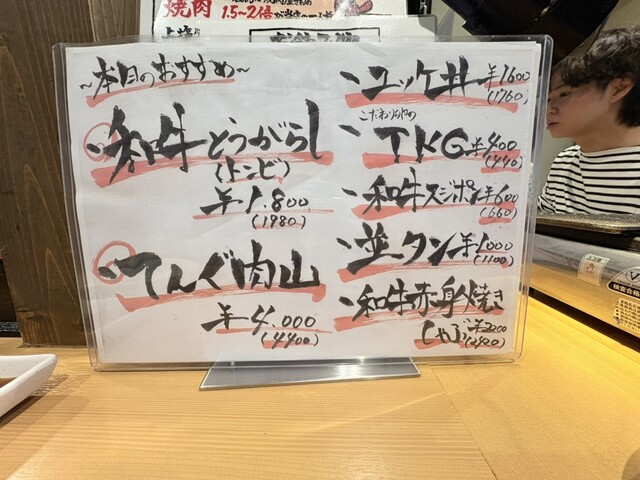 焼肉
1.5~2倍
~本日のおすすめ~
和牛とうがらし
(トンビ)
¥1.800
(1980)
てんぐ肉山
¥4.000
(4400)
ユッケ丼 ¥1600
(1760)
こだわりの
TKG ¥400
(440)
和牛スジポン ¥600
(660)
並タン ¥1000
(1100)
和牛赤身焼き
しゃぶ ¥2200
(2420)